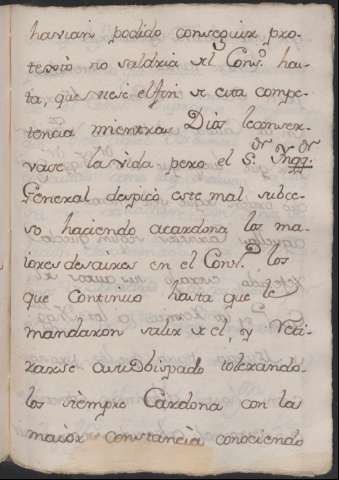 havian podido conseguir, pro-
testò no saldria del Cons.º has-
ta, que viese el fin de esta compe-
tencia mientras Dios le conser-
vase la vida pero el S.ºʳ Ynqq.ºʳ
General despicò este mal subce-
so haciendo a cardona los ma-
iores desaires en el Cons.º los
que Continuo hasta que le
mandaron salir de el, y Reti-
rarse a su Obispado tolerando-
los siempre Cardona con la
maior constancia conociendo